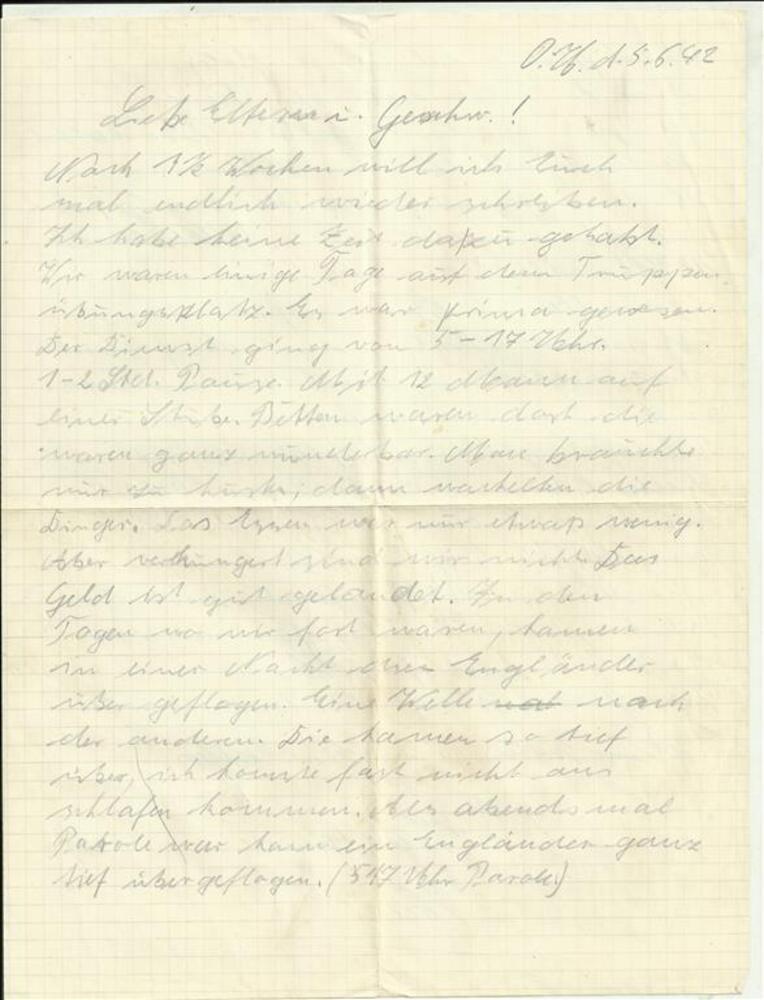 O.U. d. 5.6.42
Liebe Eltern u. Geschw.!
Nach 1½ Wochen will ich Euch
mal endlich wieder schreiben.
Ich habe keine Zeit dazu gehabt.
Wir waren einige Tage auf dem Truppen
übungsplatz. Es war prima gewesen.
Der Dienst ging von 5-17 Uhr.
1-2 Std. Pause. Mit 12 Mann auf
einer Stube. Betten waren dort die
waren ganz wunderbar. Man brauchte
nur zu husten, dann wackelten die
Dinger. Das Essen war nur etwas wenig.
Aber verhungert sind wir nicht. Das
Geld ist gut gelandet. In den
Tagen wo wir fort waren, kamen
in einer Nacht den Engländer
über geflogen. Eine Welle nach
der anderen. Die kamen so tief
über, ich konnte fast nicht ans
schlafen kommen. Als abends mal
Parole war kam ein Engländer ganz
tief über geflogen. (547 Uhr Parole)